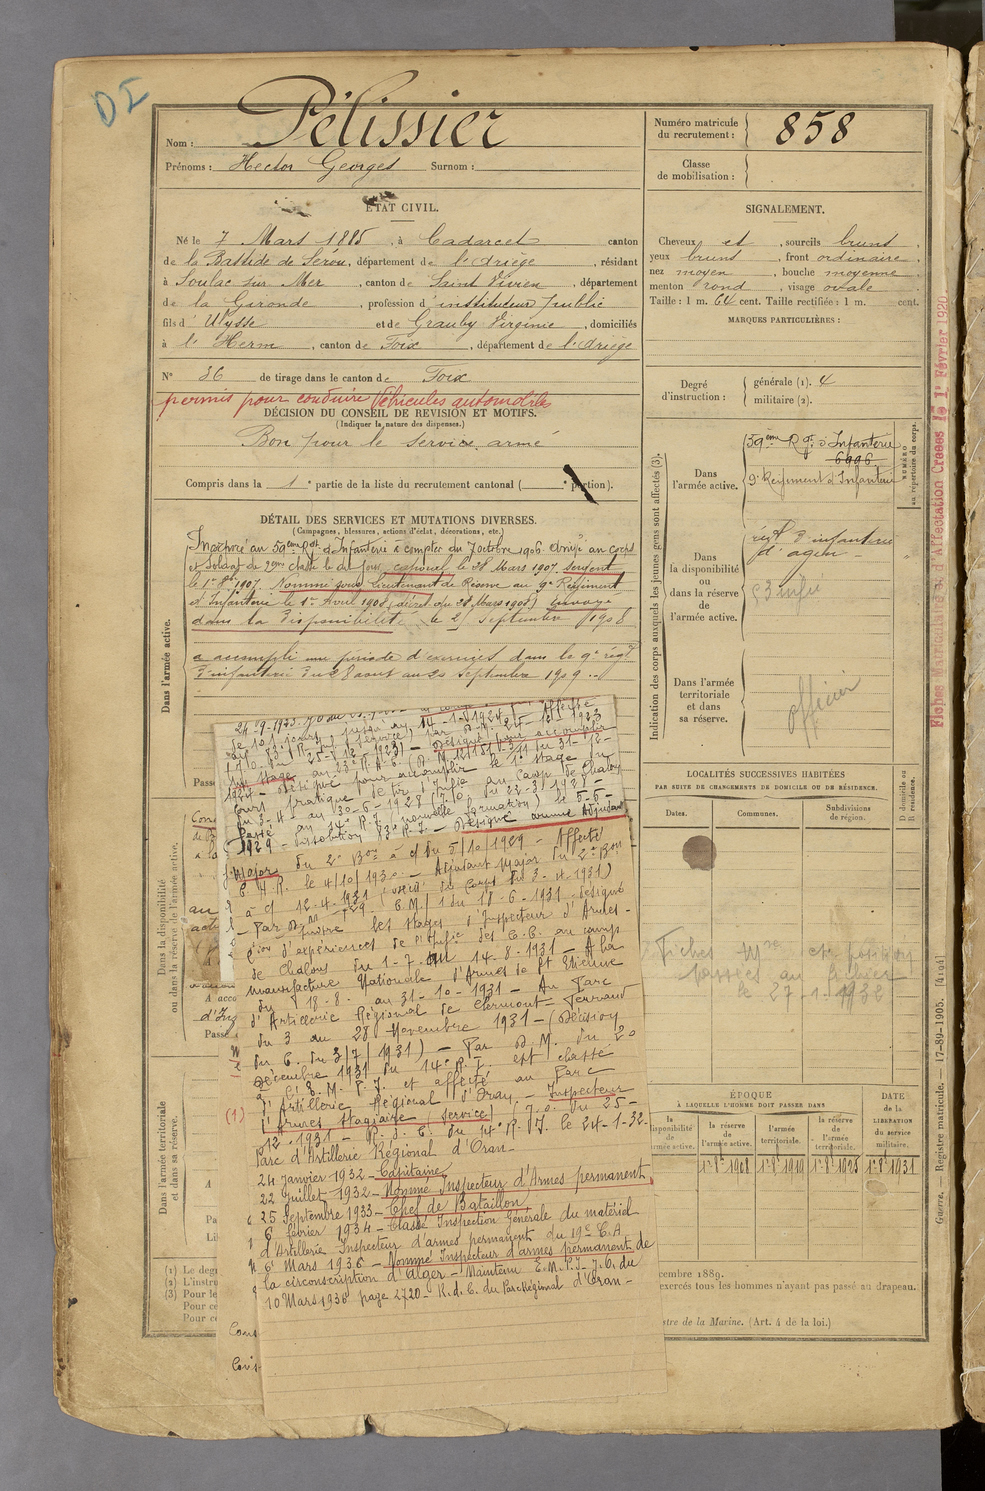 DI
Nom : Pélissier
Prénoms : Hector Georges Surnom :
Numéro matricule
du recrutement : 858
Classe
de mobilisation :
ÉTAT CIVIL.
Né le 7 Mars 1885, à Cadarcet canton
de la Bastide de Sérou, département de l'Ariège, résidant
à Soulac sur Mer, canton de Saint Vivien, département
de la Gironde, profession d'instituteur public
fils d' Ulysse et de Grauby Virginie, domiciliés
à l' Herm, canton de Foix, département de l'Ariège
N° 36 de tirage dans le canton de Foix
permis pour conduire Véhicules automobiles
DÉCISION DU CONSEIL DE REVISION ET MOTIFS.
(Indiquer la nature des dispenses.)
Bon pour le service armé
Compris dans la 1e partie de la liste du recrutement cantonal ( e portion).
SIGNALEMENT.
Cheveux et , sourcils bruns ,
yeux bruns , front ordinaire ,
nez moyen , bouche moyenne ,
menton rond , visage ovale .
Taille : 1 m. 64 cent. Taille rectifiée : 1 m. cent.
MARQUES PARTICULIÈRES :
Degré
d'instruction :
générale (1). 4
militaire (2).
DÉTAIL DES SERVICES ET MUTATIONS DIVERSES.
(Campagnes, blessures, actions d'éclat, décorations, etc.)
Dans l'armée active.
Incorporé au 59ème Rgt d'Infanterie à compter du 7 octobre 1906. Arrivé au corps
et Soldat de 2eme classe le dit jour, caporal le 28 Mars 1907. sergent
le 1er 8bre 1907. Nommé sous lieutenant de Réserve au 9e Régiment
d'Infanterie le 1er Avril 1908 (décret du 28 Mars 1908) Envoyé
dans la disponibilité le 21 Septembre 1908
a accompli une période d'exercices dans le 9e régt
d'infanterie du 28 aout au 20 septembre 1909
Indication des corps auxquels les jeunes gens sont affectés (3).
Dans
l'armée active.
59ème Rgt d'Infanterie
6996
9e Régiment d'Infanterie
NUMÉRO
au répertoire du corps.
Dans
la disponibilité
ou
dans la réserve
de
l'armée active.
régt d'infanterie
d'agen
Dans l'armée
territoriale
et dans
sa réserve.
officier
Fiches Matriculaires d'Affectation Créées le 1er Février 1920
LOCALITÉS SUCCESSIVES HABITÉES
PAR SUITE DE CHANGEMENTS DE DOMICILE OU DE RÉSIDENCE.
Dates.
Communes.
Subdivisions
de région.
D domicile ou
R résidence.
Fiches Mre et position
passées au fichier
le 27-1-1932
Dans la disponibilité
ou dans la réserve de l'armée active.
Dans l'armée territoriale
et dans sa réserve.
de 10 jours, jusqu'au 14-1-1924
Désigné pour accomplir
un stage au 23e
1924 - Désigné pour accomplir le 1er stage du
Cours pratique de tir d'Infie au Camp de Chalons
du 3-4- au 30-6-1928 (J.O. du 22-3-1928 -
Passé au 14e R.I. (nouvelle formation) le 5-6-
1929 - dissolution 83e R.I. - Désigné comme Adjudant
Major du 2e Bon à c/ du 5/10/1929 - Affecté
C.H.R. le 4/10/1930 - Adjudant Major du 2e Bon
à c/ 12-4-1931 (décis. du Corps du 3-4-1931)
d'expériences de l'Infie des C.C. au camp
de Chalons du 1-7- au 14-8-1931 - A la
manufacture Nationale d'Armes de St Etienne
du 18-8- au 31-10-1931 - Au Parc
d'Artillerie Régional de Clermont-Ferrand
du 3 au 28 Novembre 1931 - (Décision
du C. du 3/7/1931) - Par D.M. du 20
Décembre 1931 du 14e R.I. est classé
à l' E.M.P.I. et affecté au Parc
d'Artillerie Régional d'Oran - Inspecteur
(1) d'Armes Stagiaire (service) (J.O. du 25-
12-1931 - R.d.C. du 14e R.I. le 24-1-32-
Parc d'Artillerie Régional d'Oran-
24 Janvier 1932 - Capitaine
22 Juillet 1932 - Nommé Inspecteur d'Armes permanent
25 Septembre 1933 - Chef de Bataillon
6 février 1934 - Classé Inspection Générale du matériel
d'Artillerie Inspecteur d'armes permanent du 19e C.A
6 Mars 1936 - Nommé Inspecteur d'armes permanent de
la circonscription d'Alger - Maintenu E.M.P.I - J.O. du
10 Mars 1936 page 2720 - R.d.C. du Parc Régional d'Oran -
ÉPOQUE
À LAQUELLE L'HOMME DOIT PASSER DANS
la
disponibilité
de
l'armée active.
la réserve
de
l'armée active.
l'armée
territoriale.
la réserve
de
l'armée
territoriale.
DATE
de la
LIBÉRATION
du service
militaire.
1er 8bre 1908
1er 8bre 1919
1er 8bre 1925
1er 8bre 1931
(1) Le degr
(2) L'instru
(3) Pour le
Pour ce
Pour ce
cembre 1889.
exercés tous les hommes n'ayant pas passé au drapeau.
stre de la Marine. (Art. 4 de la loi.)
Guerre. — Registre matricule. — 17-89-1905. [4194]